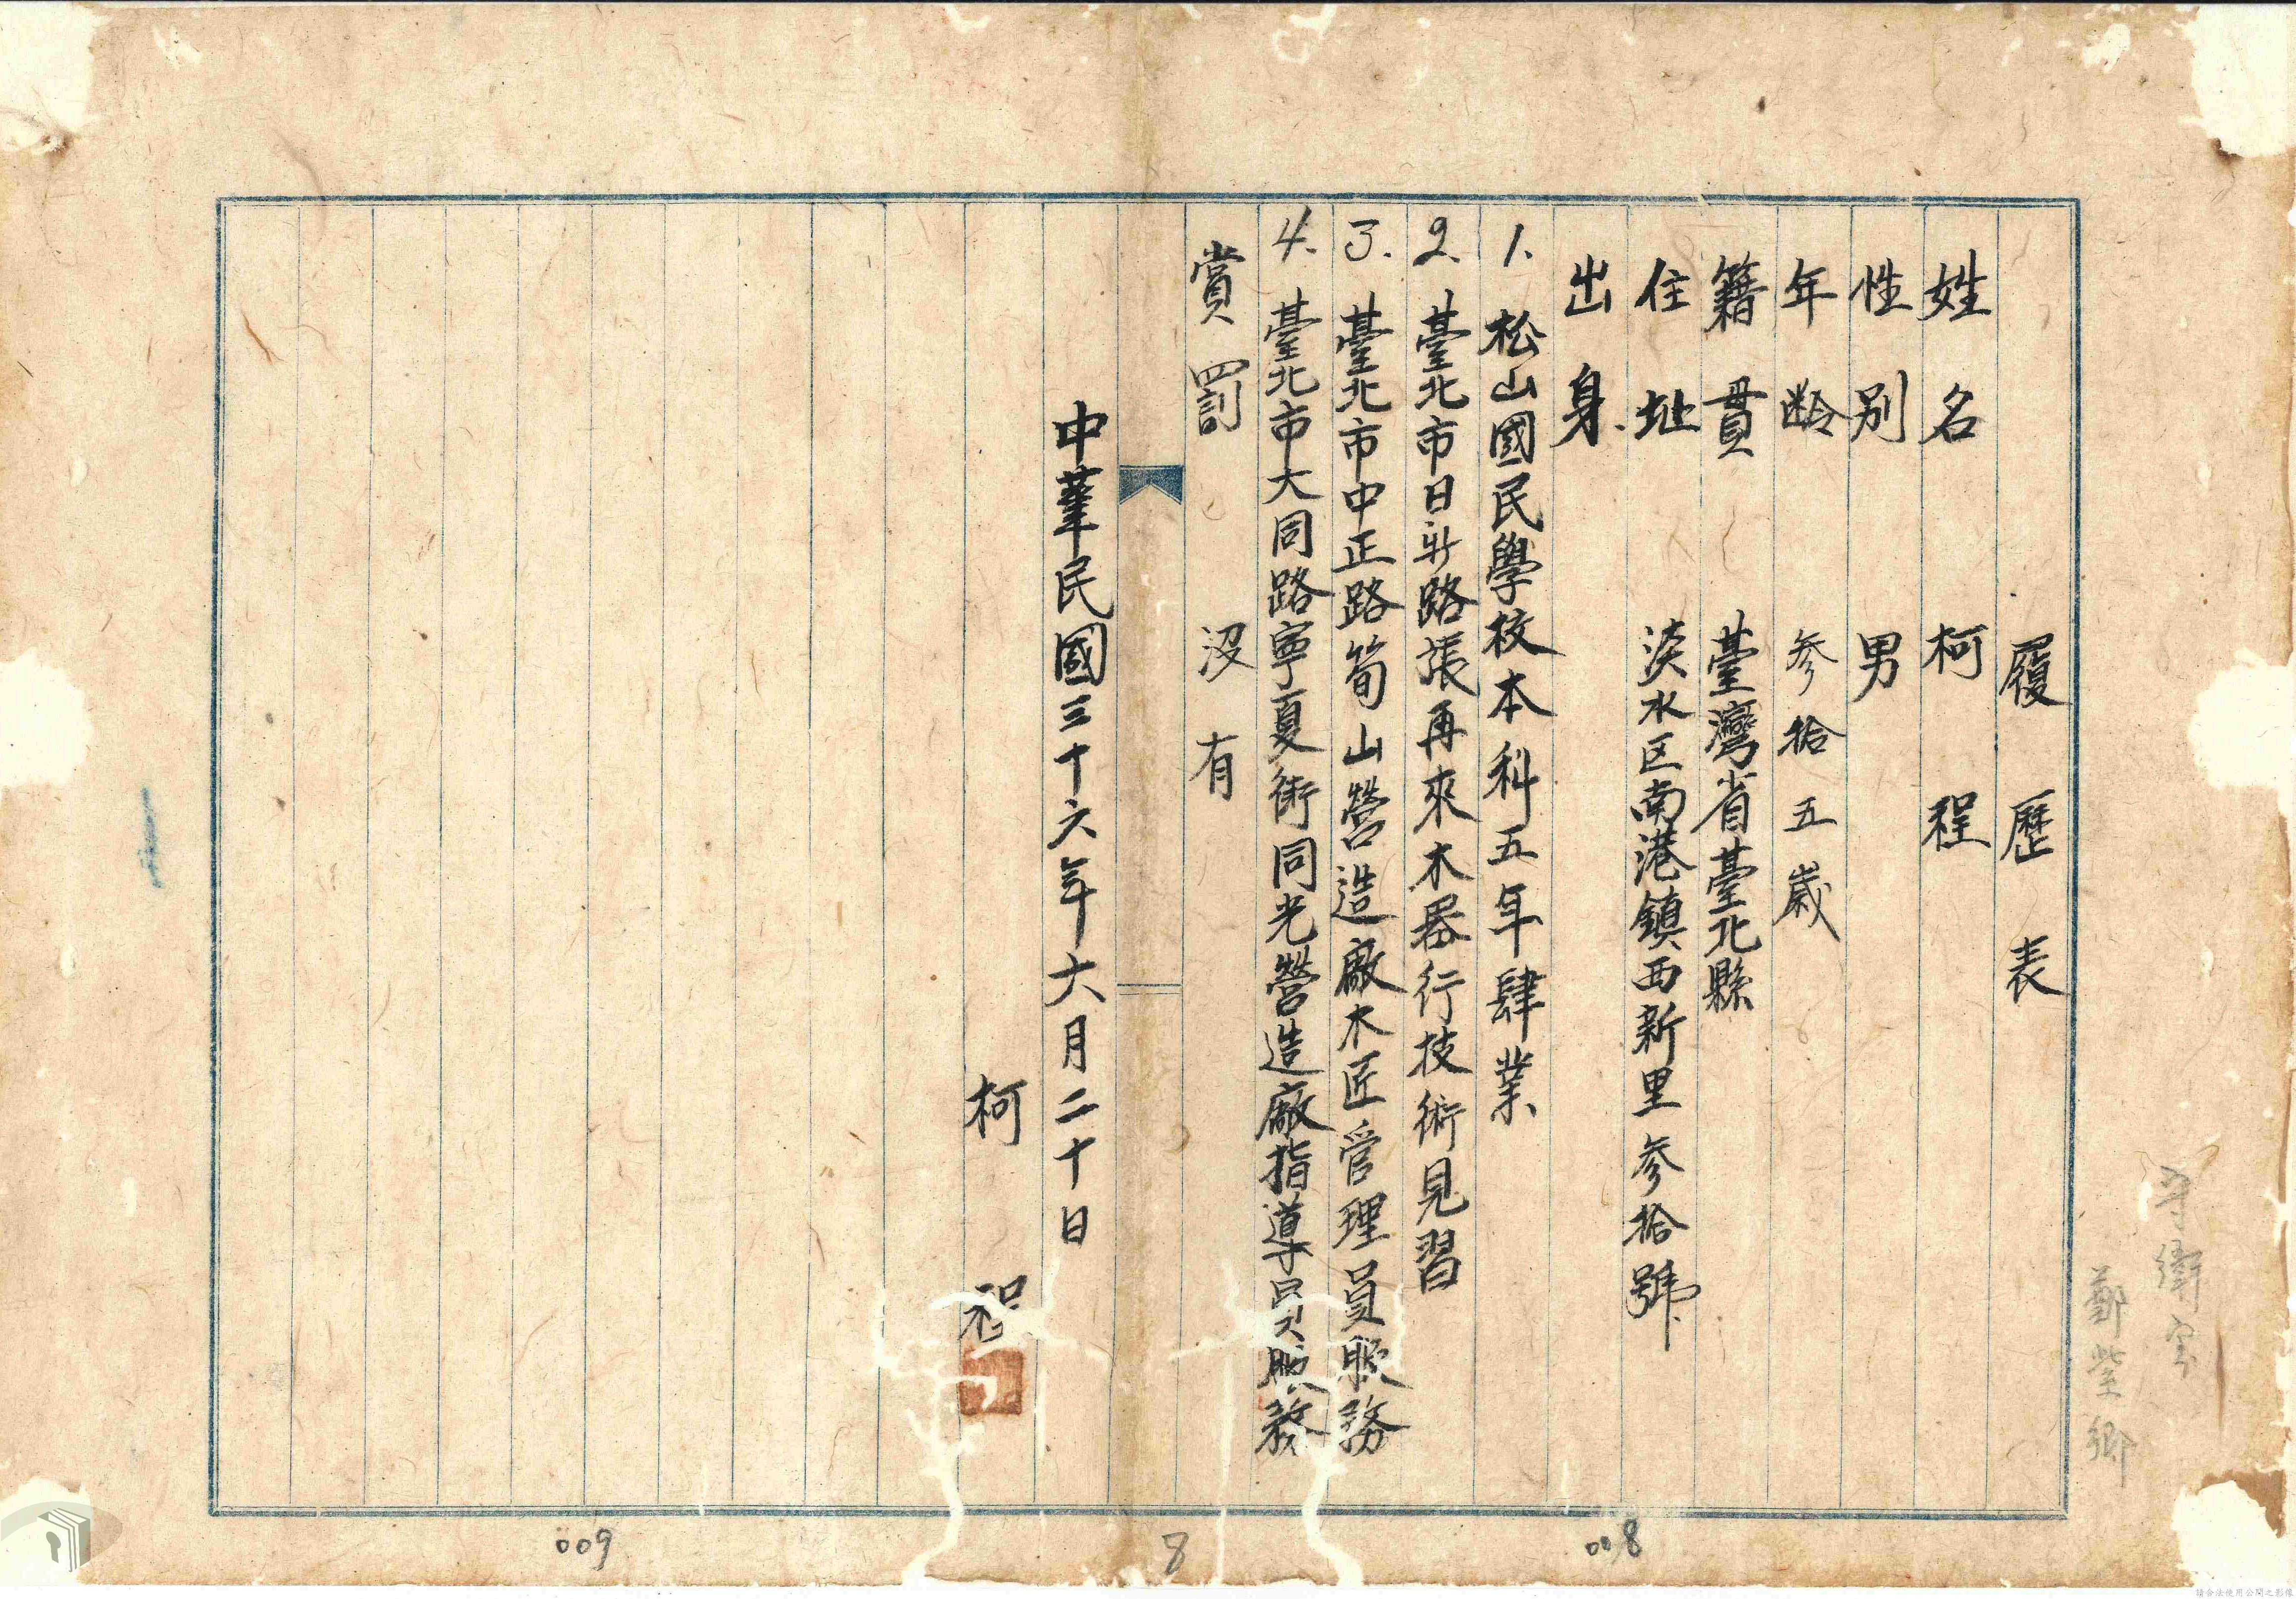 履歷表
姓名 柯程
性別 男
年齡 参拾五歲
籍貫 臺灣省臺北縣
住址 淡水区南港鎮西新里参拾號
出身
1. 松山國民學校本科五年肆業
2. 臺北市日新路張再來木器行技術見習
3. 臺北市中正路筍山營造廠木匠管理員服務
4. 臺北市大同路寧夏街同光營造廠指導員服務
賞罰 沒有
中華民國三十六年六月二十日
柯程
鄭堂鄉
008
8
009
請合法使用公開之影像